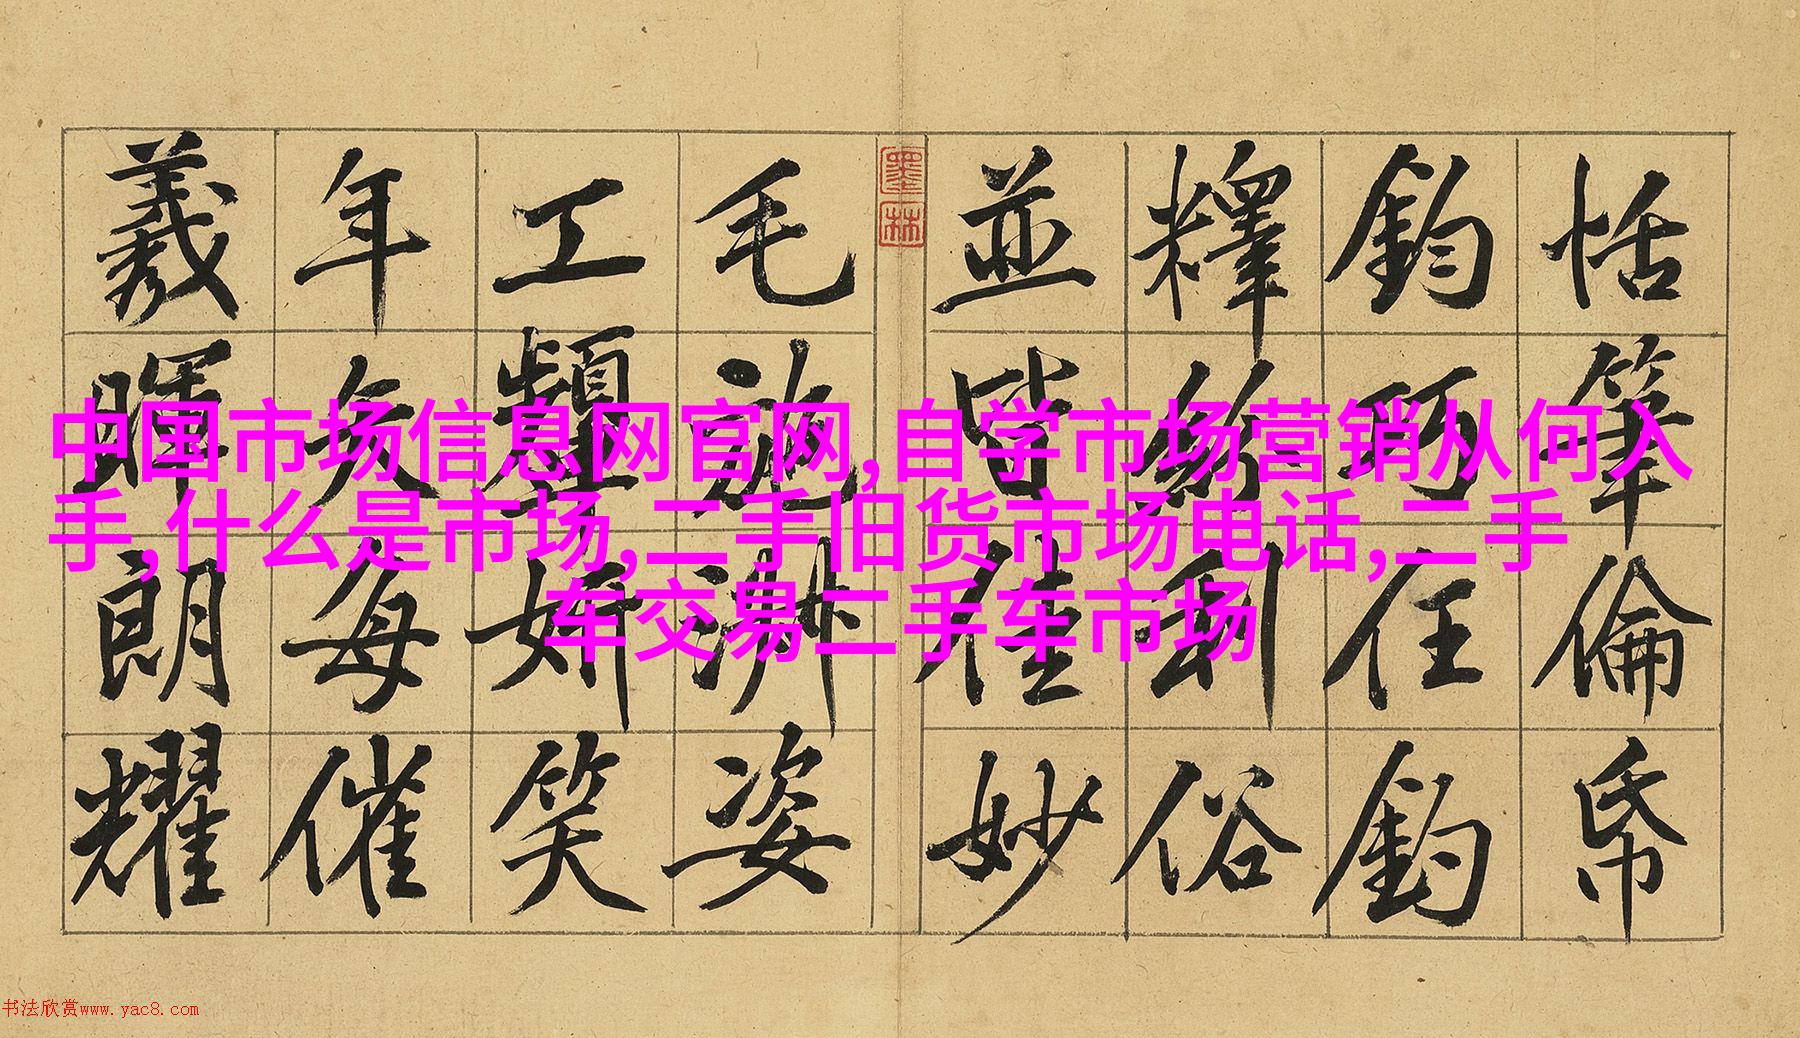 中国市场信息网官网,自学市场营销从何入
手,什么是市场,二手旧货市场电话,二手
车交易二手车市场
恬筆倫帋
鈞巧任釣
釋紛利俗
並皆佳妙
墨林
毛施淑姿
工顰妍笑
年矢每催
羲暉朗耀
书法欣赏www.yac8.com